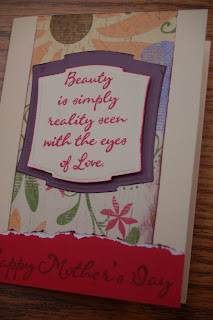 Beauty
is simply
reality seen
with the eyes
of Love.
Happy Mother's Day